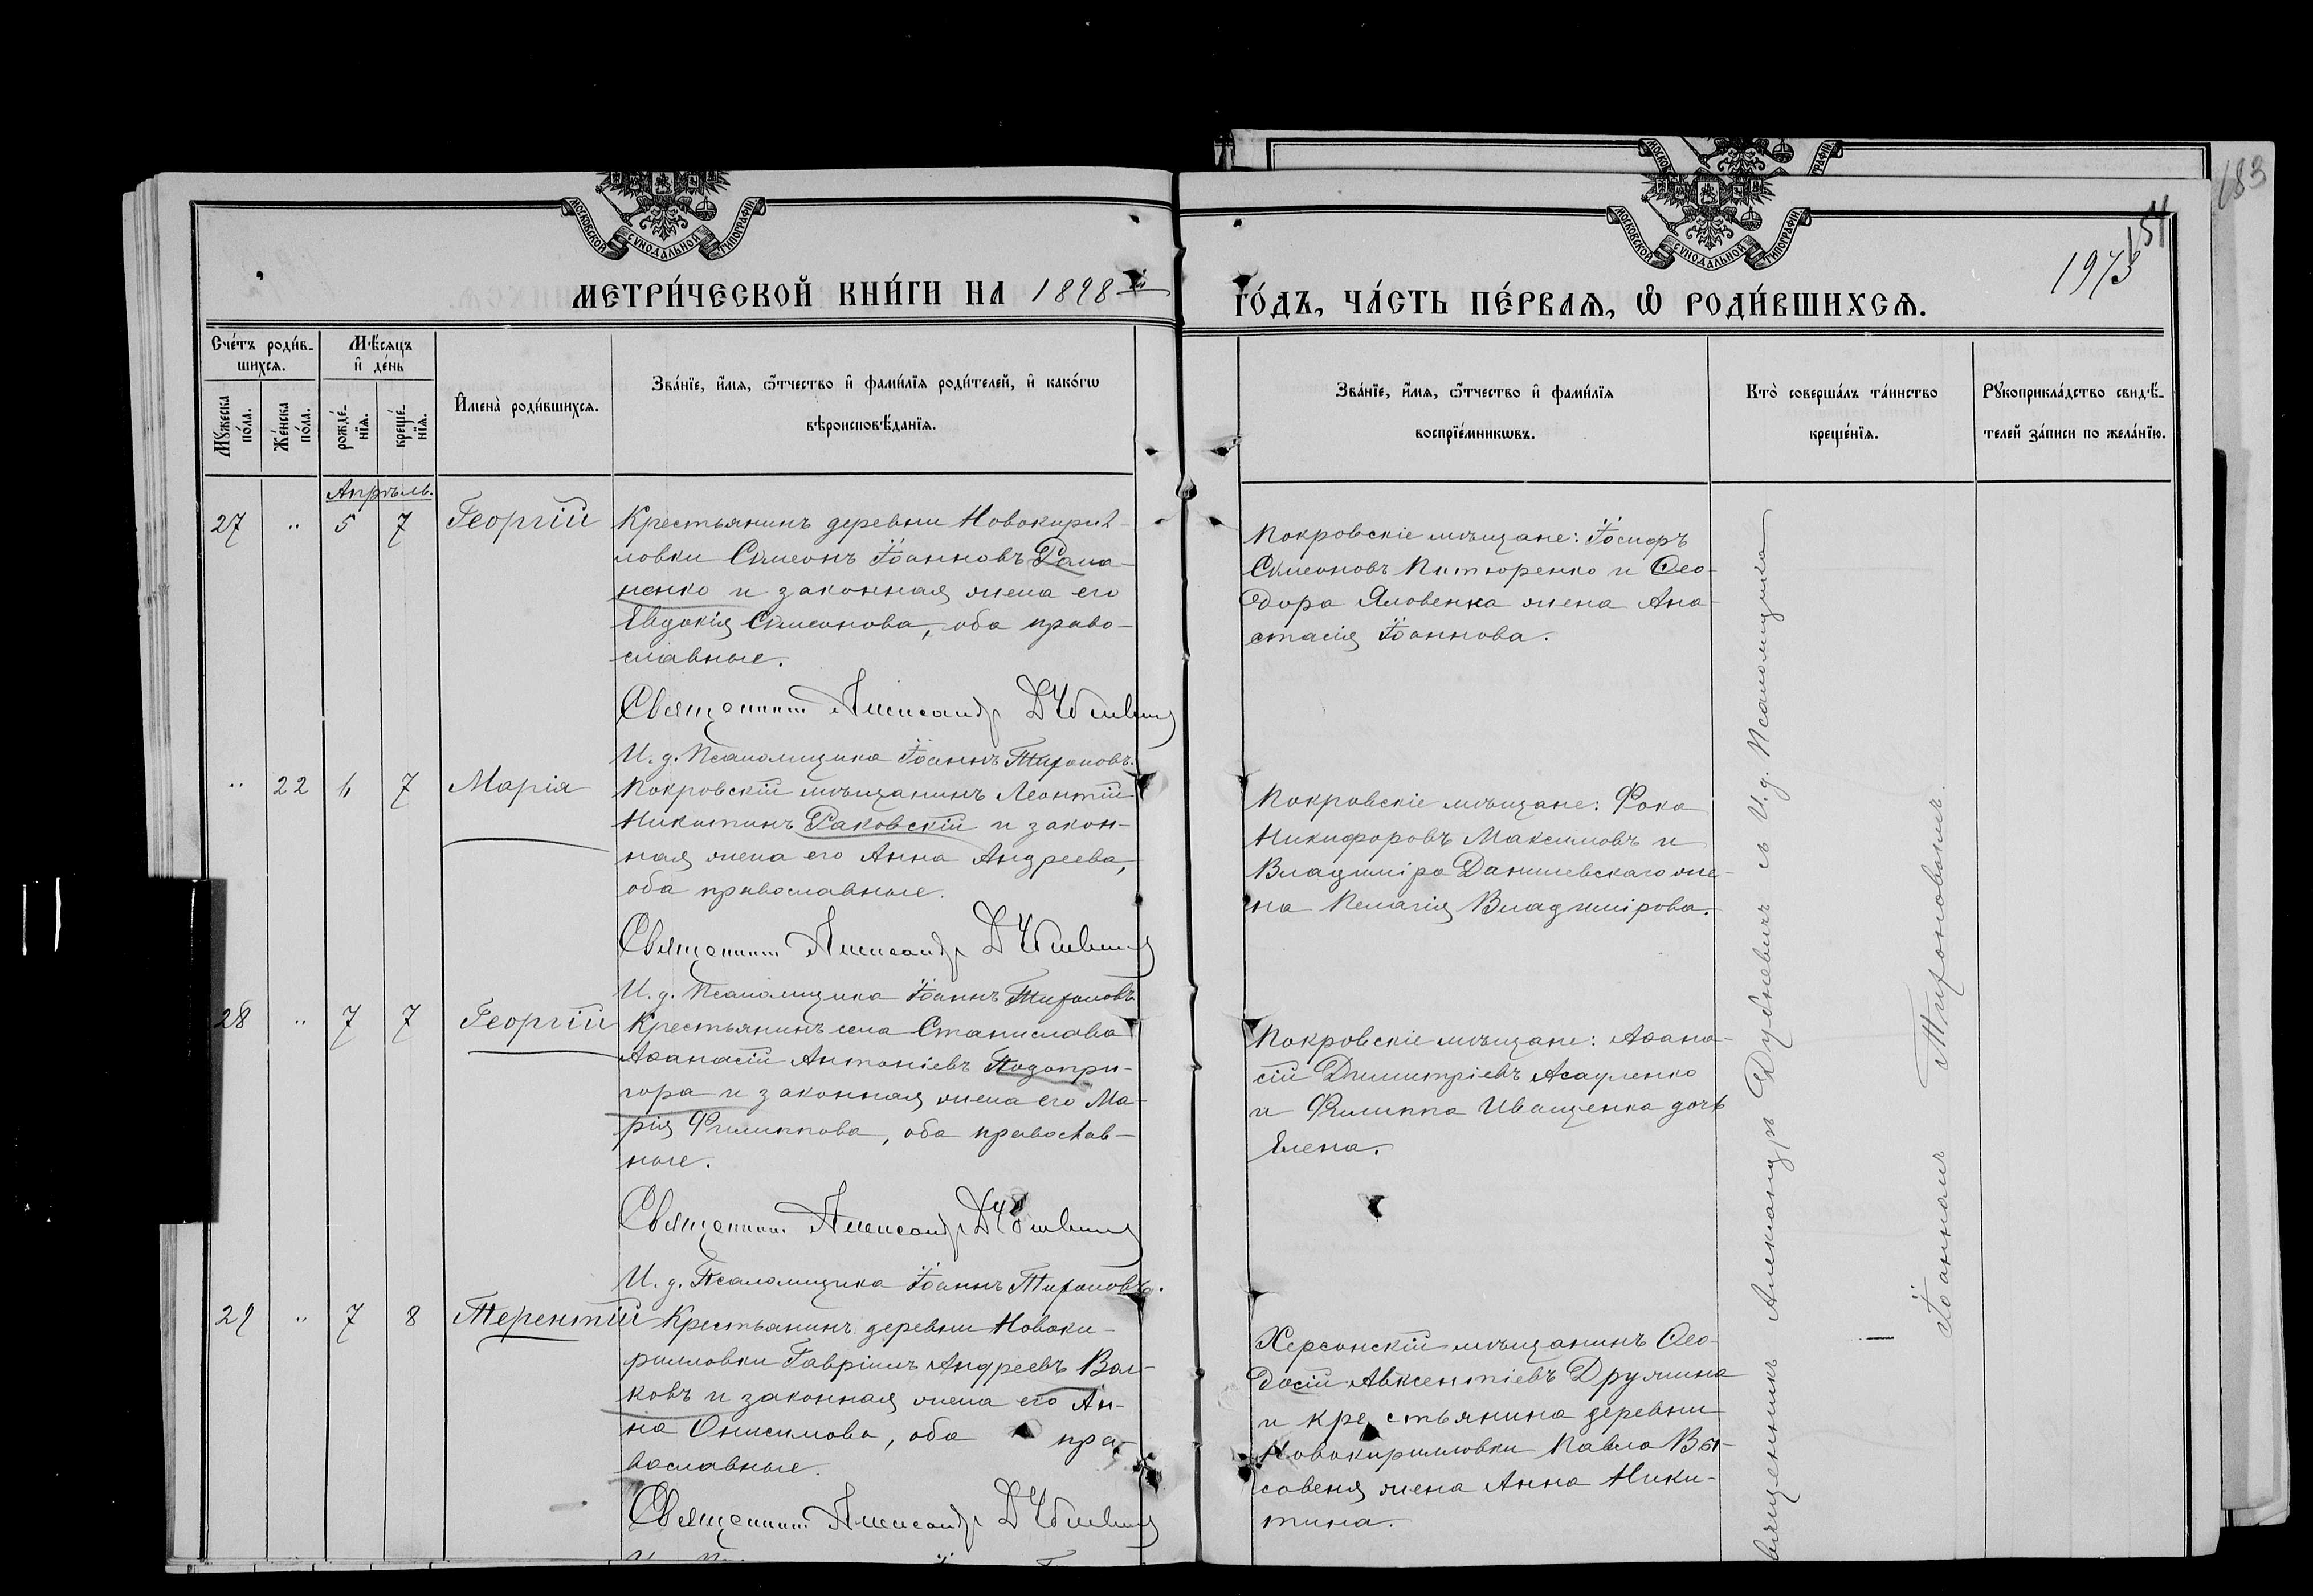 183
МОСКОВСКОЙ СѴНОДАЛЬНОЙ ТИПОГРАФІИ
МОСКОВСКОЙ СѴНОДАЛЬНОЙ ТИПОГРАФІИ
51
1973
МЕТРИ́ЧЕСКОЙ КНИ́ГИ НА 1898 й
ГО́ДЪ, ЧА́СТЬ ПЕ́РВАѦ, Ѡ҆ РОДИ́ВШИХСѦ.
Сче́тъ роди́в-
шихсѧ.
Мꙋ́жеска по́ла.
Же́нска по́ла.
Мѣ́сѧцъ
и҆ де́нь
рожде́-
нїѧ.
креще́-
нїѧ.
И҆мена̀ роди́вшихсѧ.
Зва́нїе, и҆́мѧ, ѻ҆́тчество и҆ фами́лїѧ роди́телей, и҆ како́гѡ
вѣроисповѣ́данїѧ.
Зва́нїе, и҆́мѧ, ѻ҆́тчество и҆ фами́лїѧ
воспрїе́мникѡвъ.
Кто̀ соверша́лъ та́инство
креще́нїѧ.
Рꙋкоприкла́дство свидѣ́-
телей за́писи по жела́нїю.
Апрѣль.
27 " 5 7 Георгій
Крестьянинъ деревни Новокирил-
ловки Симеонъ Іоанновъ Рома-
ненко и законная жена его
Евдокія Симеонова, оба право-
славные.
Священникъ Александръ Дубневичъ
И. д. Псаломщика Іоаннъ Тихоновъ.
Покровскіе мѣщане: Іосифъ
Симеоновъ Питюренко и Ѳео-
дора Яловенка жена Ана-
стасія Іоаннова.
" 22 6 7 Марія
Покровскій мѣщанинъ Леонтій
Никитинъ Раковскій и закон-
ная жена его Анна Андреева,
оба православные.
Священникъ Александръ Дубневичъ
И. д. Псаломщика Іоаннъ Тихоновъ
Покровскіе мѣщане: Фока
Никифоровъ Максимовъ и
Владиміра Данилевскаго же-
на Пелагія Владимірова.
28 " 7 7 Георгій
Крестьянинъ села Станислава
Аѳанасій Антоніевъ Подопри-
гора и законная жена его Ма-
рія Филиппова, оба православ-
ные.
Священникъ Александръ Дубневичъ
И. д. Псаломщика Іоаннъ Тихоновъ.
Покровскіе мѣщане: Аѳана-
сій Димитріевъ Асауленко
и Филиппа Иващенка дочь
Елена.
29 " 7 8 Терентій
Крестьянинъ деревни Новоки-
рилловки Гавріилъ Андреевъ Вол-
ковъ и законная жена его Ан-
на Онисимова, оба пра-
вославные.
Священникъ Александръ Дубневичъ
Херсонскій мѣщанинъ Ѳео-
досій Авксентіевъ Дружина
и крестьянина деревни
Новокирилловки Павла Вы-
совеня жена Анна Ники-
тина.
вященникъ Александръ Дубневичъ съ И.д. Псаломщика
Іоанномъ Тихоновымъ.